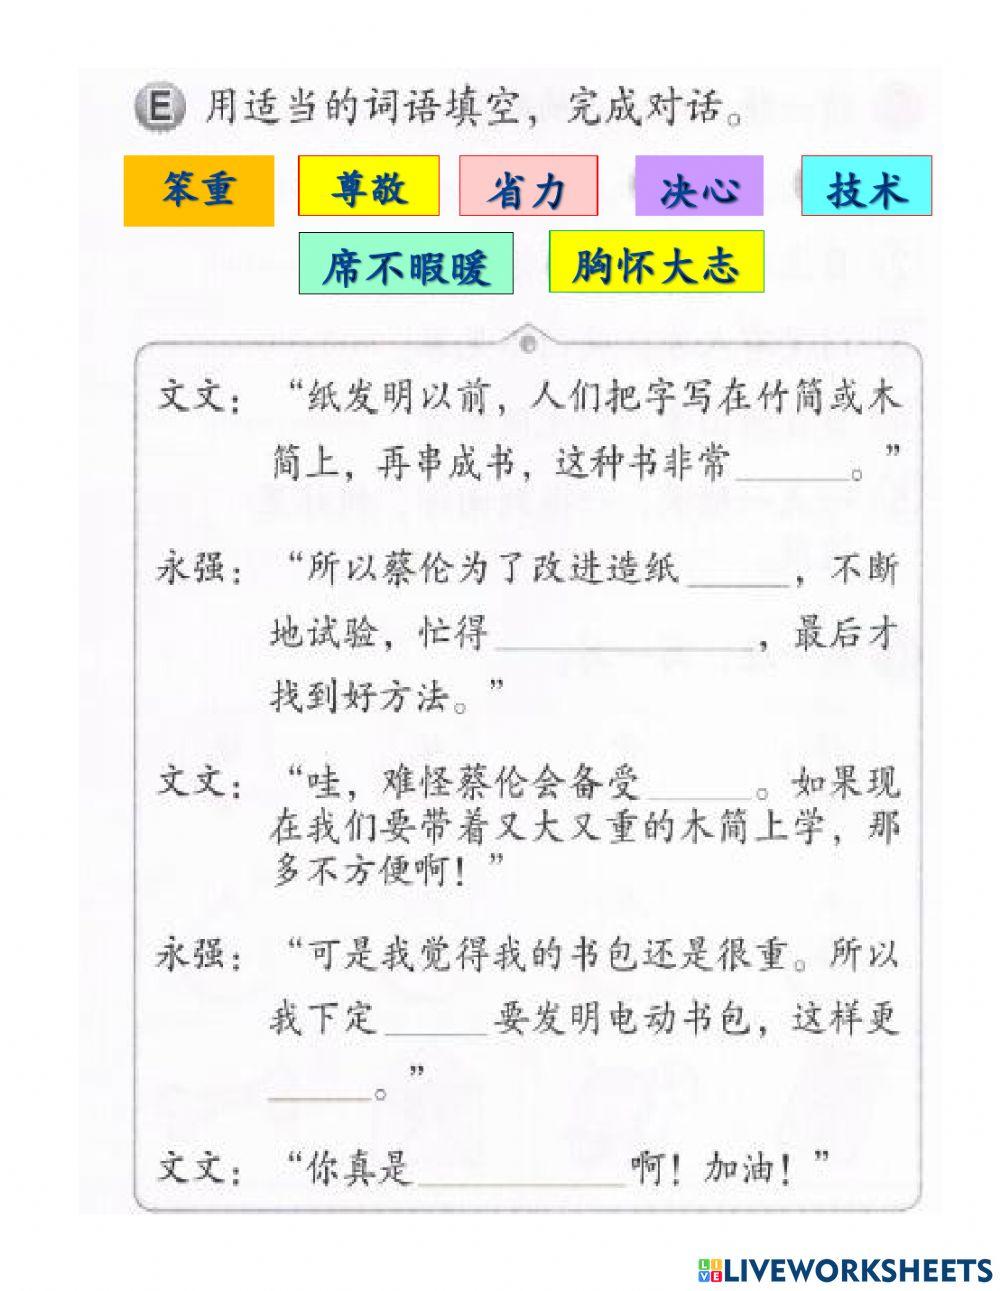 E 用适当的词语填空，完成对话。
笨重 尊敬 省力 决心 技术
席不暇暖 胸怀大志
文文：“纸发明以前，人们把字写在竹简或木
简上，再串成书，这种书非常______。”
永强：“所以蔡伦为了改进造纸______，不断
地试验，忙得______________，最后才
找到好方法。”
文文：“哇，难怪蔡伦会备受______。如果现
在我们要带着又大又重的木简上学，那
多不方便啊！”
永强：“可是我觉得我的书包还是很重。所以
我下定______要发明电动书包，这样更
______。”
文文：“你真是____________啊！加油！”
LIVE LIVEWORKSHEETS